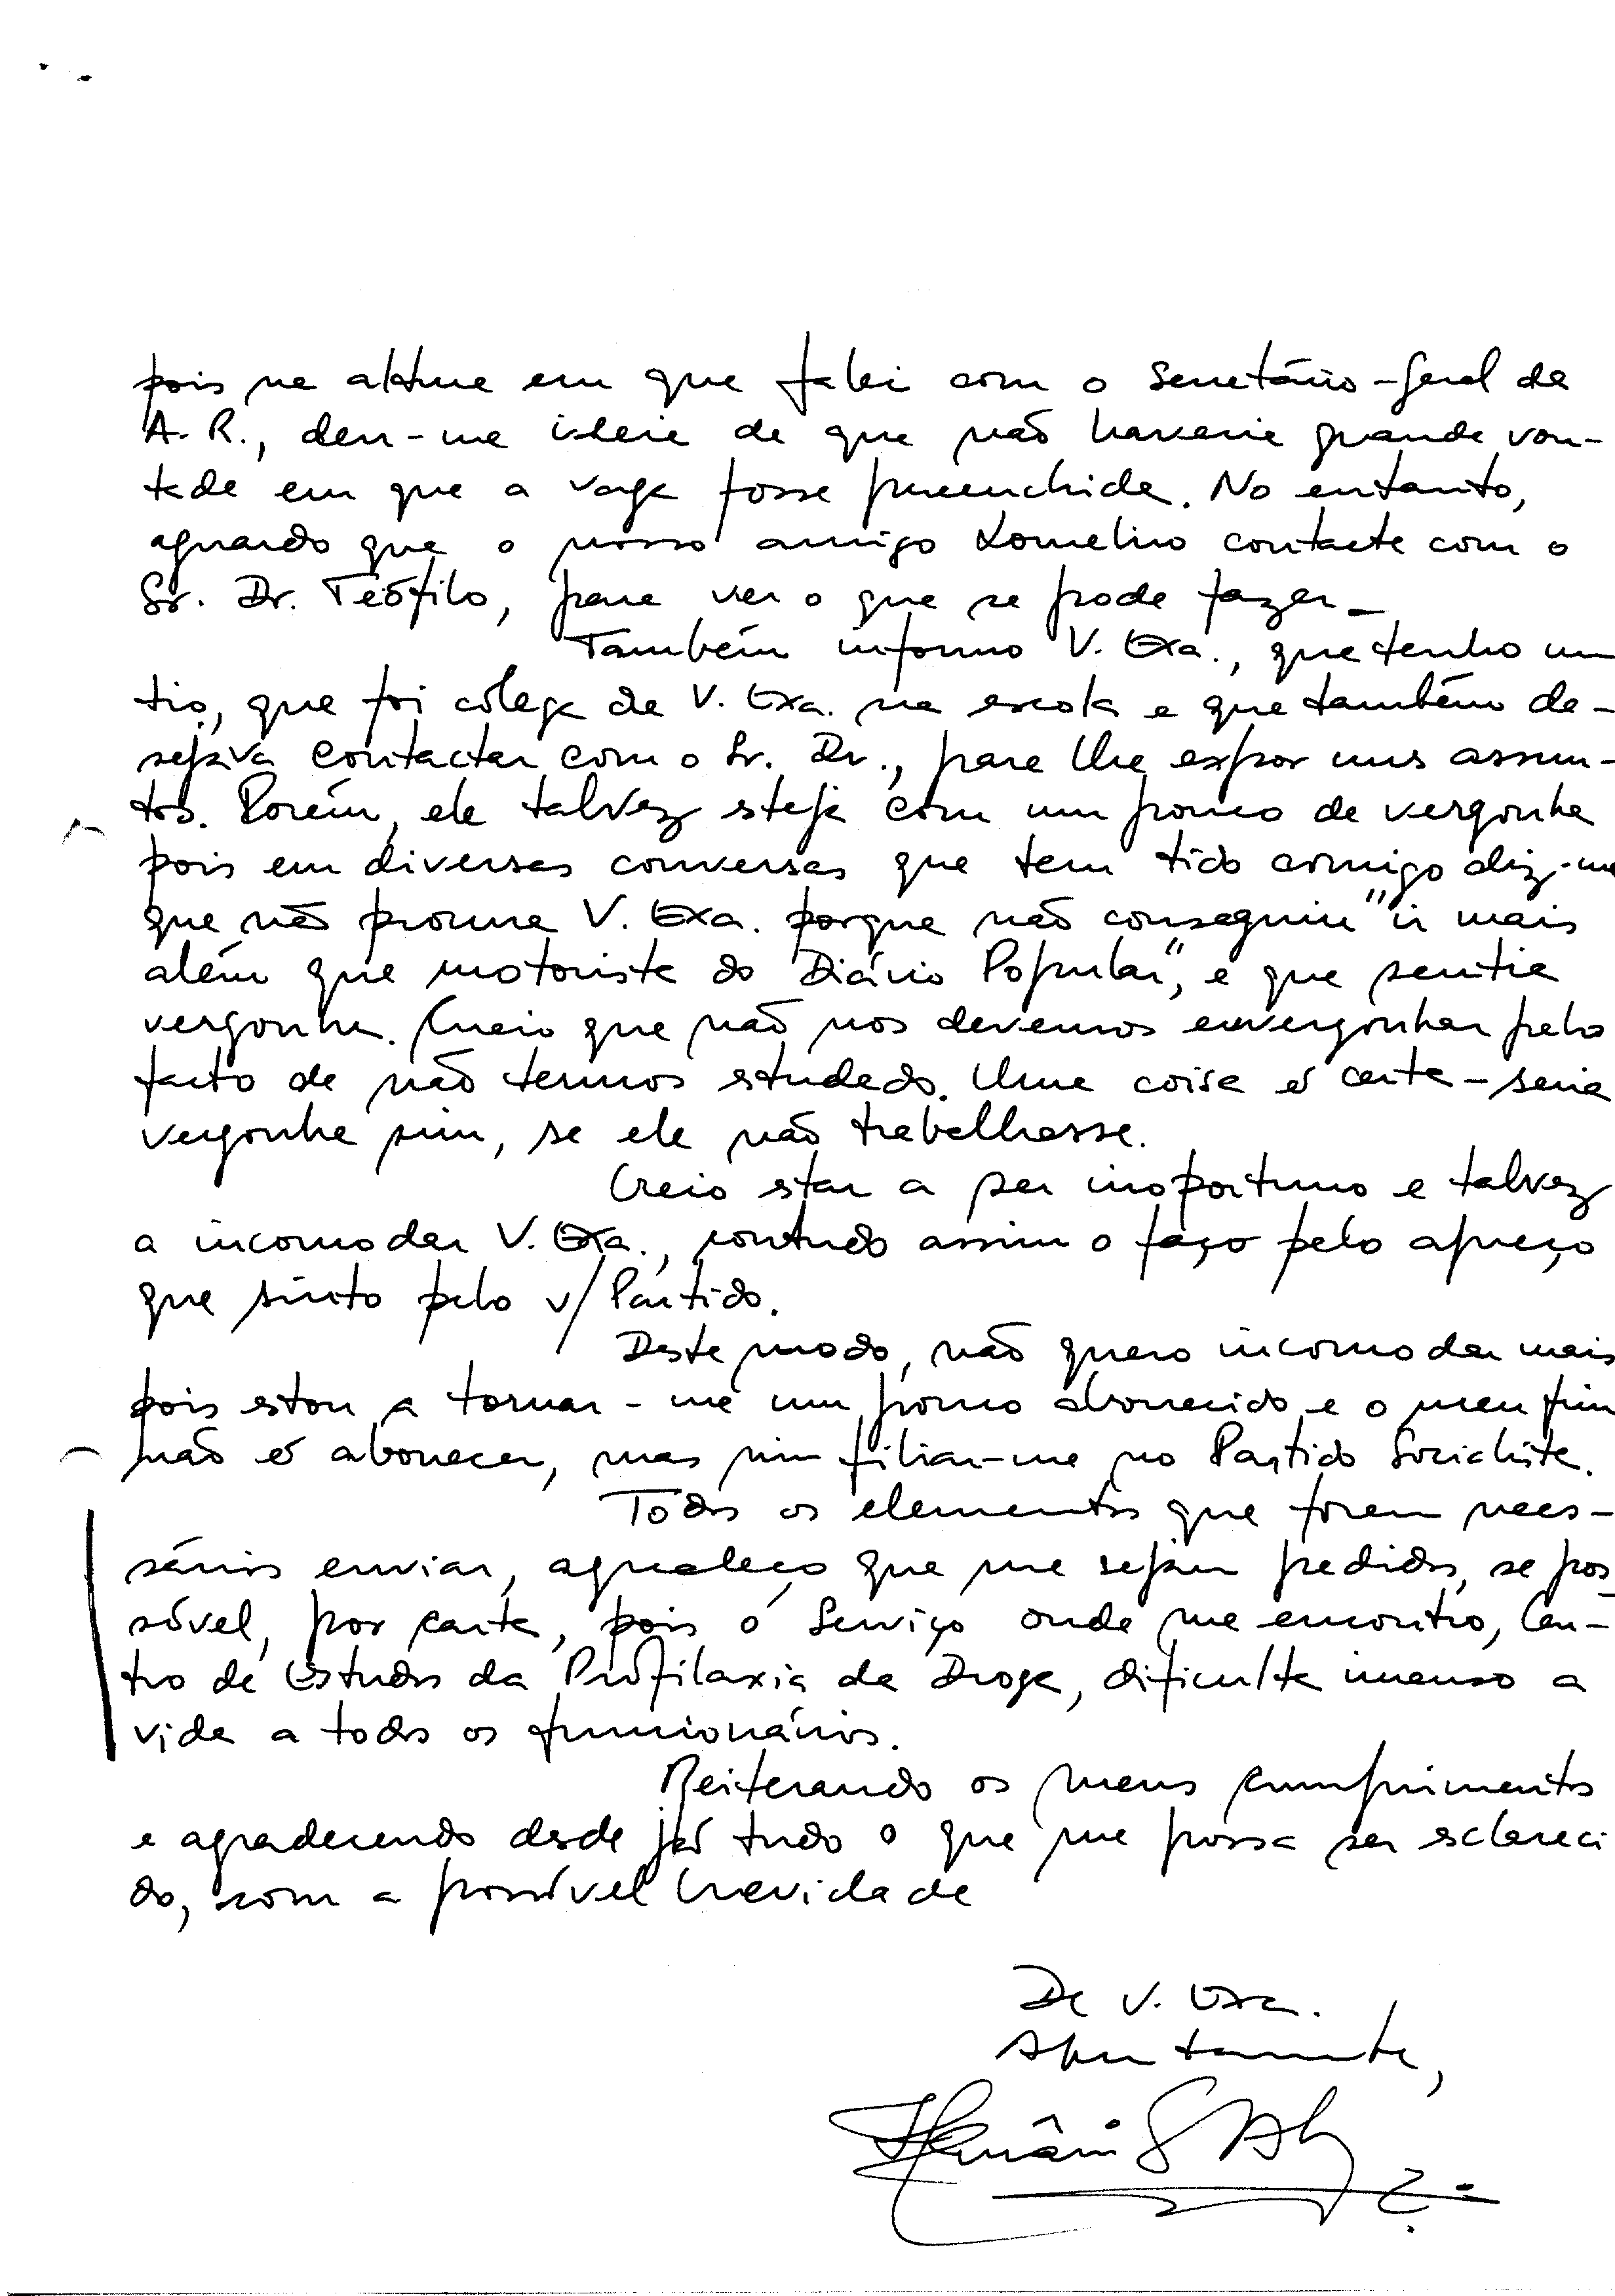 pois na altura em que falei com o Secretário-Geral da
A. R., deu-me ideia de que não haveria grande von-
tade em que a vaga fosse preenchida. No entanto,
aguardo que o nosso amigo Lomelino contacte com o
Sr. Dr. Teófilo, para ver o que se pode fazer_
Também informo V. Exa., que tenho um
tio, que foi colega de V. Exa. na escola e que também de-
sejava contactar com o Sr. Dr., para lhe expor uns assun-
tos. Porém, ele talvez esteja com um pouco de vergonha
pois em diversas conversas que tem tido comigo diz-me
que não procura V. Exa. porque não conseguiu "ir mais
além que motorista do Diário Popular", e que sentia
vergonha. Creio que não nos devemos envergonhar pelo
facto de não termos estudado. Uma coisa é certa - seria
vergonha sim, se ele não trabalhasse.
Creio estar a ser inoportuno e talvez
a incomodar V. Exa., contudo assim o faço pelo apreço
que sinto pelo v/ Partido.
Deste modo, não quero incomodar mais
pois estou a tornar-me um pouco aborrecido e o meu fim
não é aborrecer, mas sim filiar-me no Partido Socialista.
Todos os elementos que forem neces-
sários enviar, agradeço que me sejam pedidos, se pos-
sível, por carta, pois o Serviço onde me encontro, Cen-
tro de Estudos da Profilaxia da Droga, dificulta imenso a
vida a todos os funcionários.
Reiterando os meus cumprimentos
e agradecendo desde já tudo o que me possa ser esclareci
do, com a possível brevidade
De V. Exa.
Atentamente,